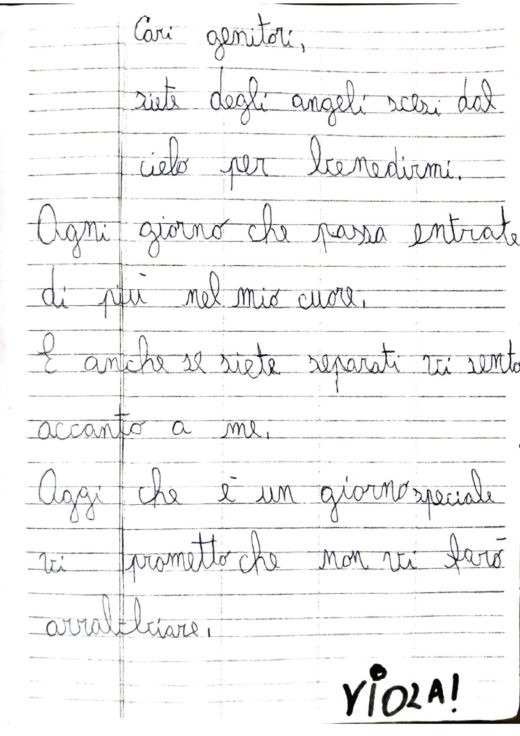 Cari genitori,
siete degli angeli scesi dal
cielo per benedirmi.
Ogni giorno che passa entrate
di più nel mio cuore.
E anche se siete separati vi sento
accanto a me.
Oggi che è un giorno speciale
vi prometto che non vi farò
arrabbiare.
VIOLA!